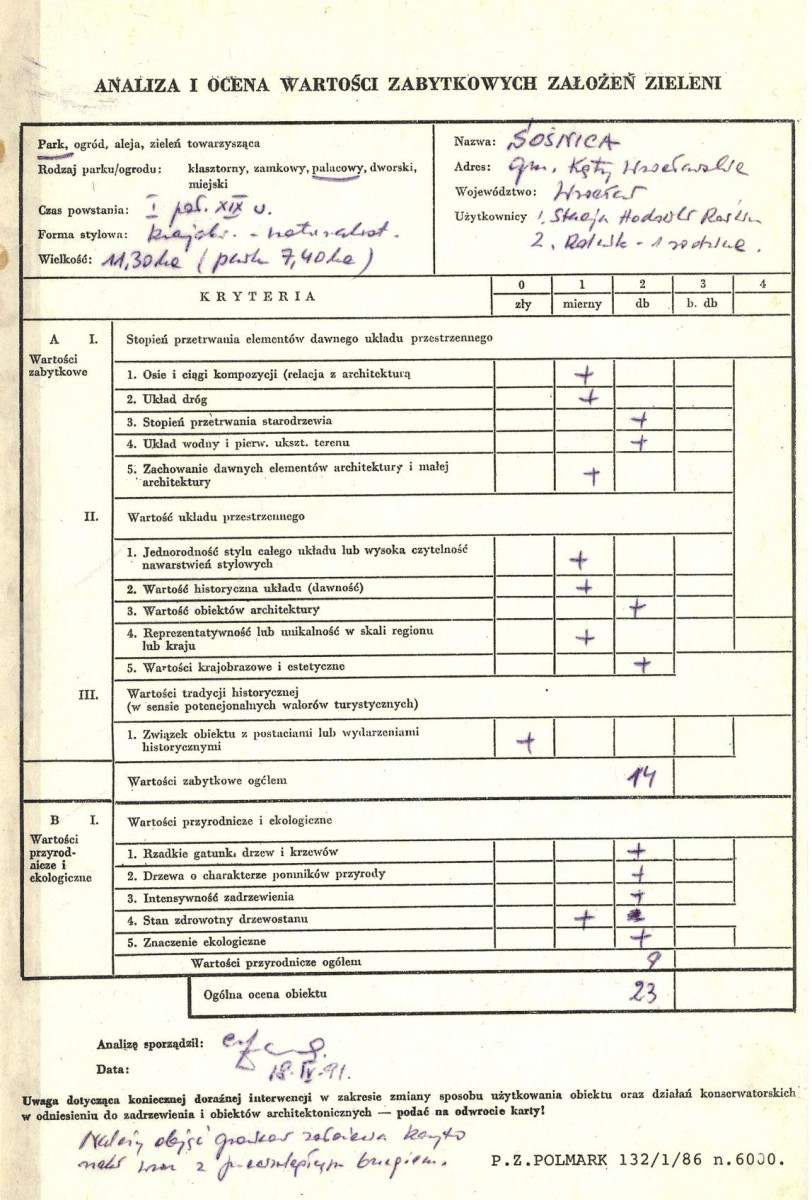 ANALIZA I OCENA WARTOŚCI ZABYTKOWYCH ZAŁOŻEŃ ZIELENI
Park, ogród, aleja, zieleń towarzysząca
Rodzaj parku/ogrodu: klasztorny, zamkowy, pałacowy, dworski,
miejski
Czas powstania: I poł. XIX w.
Forma stylowa: krajobr. - naturalist.
Wielkość: 11,30 ha (park 7,40 ha)
Nazwa: SOŚNICA
Adres: gm. Kąty Wrocławskie
Województwo: Wrocław
Użytkownicy 1. Stacja Hodowli Roślin
2. - 1 rodzina.
KRYTERIA
0 1 2 3 4
zły mierny db b. db
A I. Stopień przetrwania elementów dawnego układu przestrzennego
Wartości
zabytkowe
1. Osie i ciągi kompozycji (relacja z architekturą +
2. Układ dróg +
3. Stopień przetrwania starodrzewia +
4. Układ wodny i pierw. ukszt. terenu +
5. Zachowanie dawnych elementów architektury i małej
architektury +
II. Wartość układu przestrzennego
1. Jednorodność stylu całego układu lub wysoka czytelność
nawarstwień stylowych +
2. Wartość historyczna układu (dawność) +
3. Wartość obiektów architektury +
4. Reprezentatywność lub unikalność w skali regionu
lub kraju +
5. Wartości krajobrazowe i estetyczne +
III. Wartości tradycji historycznej
(w sensie potencjonalnych walorów turystycznych)
1. Związek obiektu z postaciami lub wydarzeniami
historycznymi +
Wartości zabytkowe ogółem 14
B I. Wartości przyrodnicze i ekologiczne
Wartości
przyrod-
nicze i
ekologiczne
1. Rzadkie gatunki drzew i krzewów +
2. Drzewa o charakterze pomników przyrody +
3. Intensywność zadrzewienia +
4. Stan zdrowotny drzewostanu +
5. Znaczenie ekologiczne +
Wartości przyrodnicze ogółem 9
Ogólna ocena obiektu 23
Analizę sporządził:
Data: 18.IV.91.
Uwaga dotycząca koniecznej doraźnej interwencji w zakresie zmiany sposobu użytkowania obiektu oraz działań konserwatorskich
w odniesieniu do zadrzewienia i obiektów architektonicznych — podać na odwrocie karty!
Należy objąć koryto
wraz z przeciwległym brzegiem.
P.Z.POLMARK 132/1/86 n.6000.